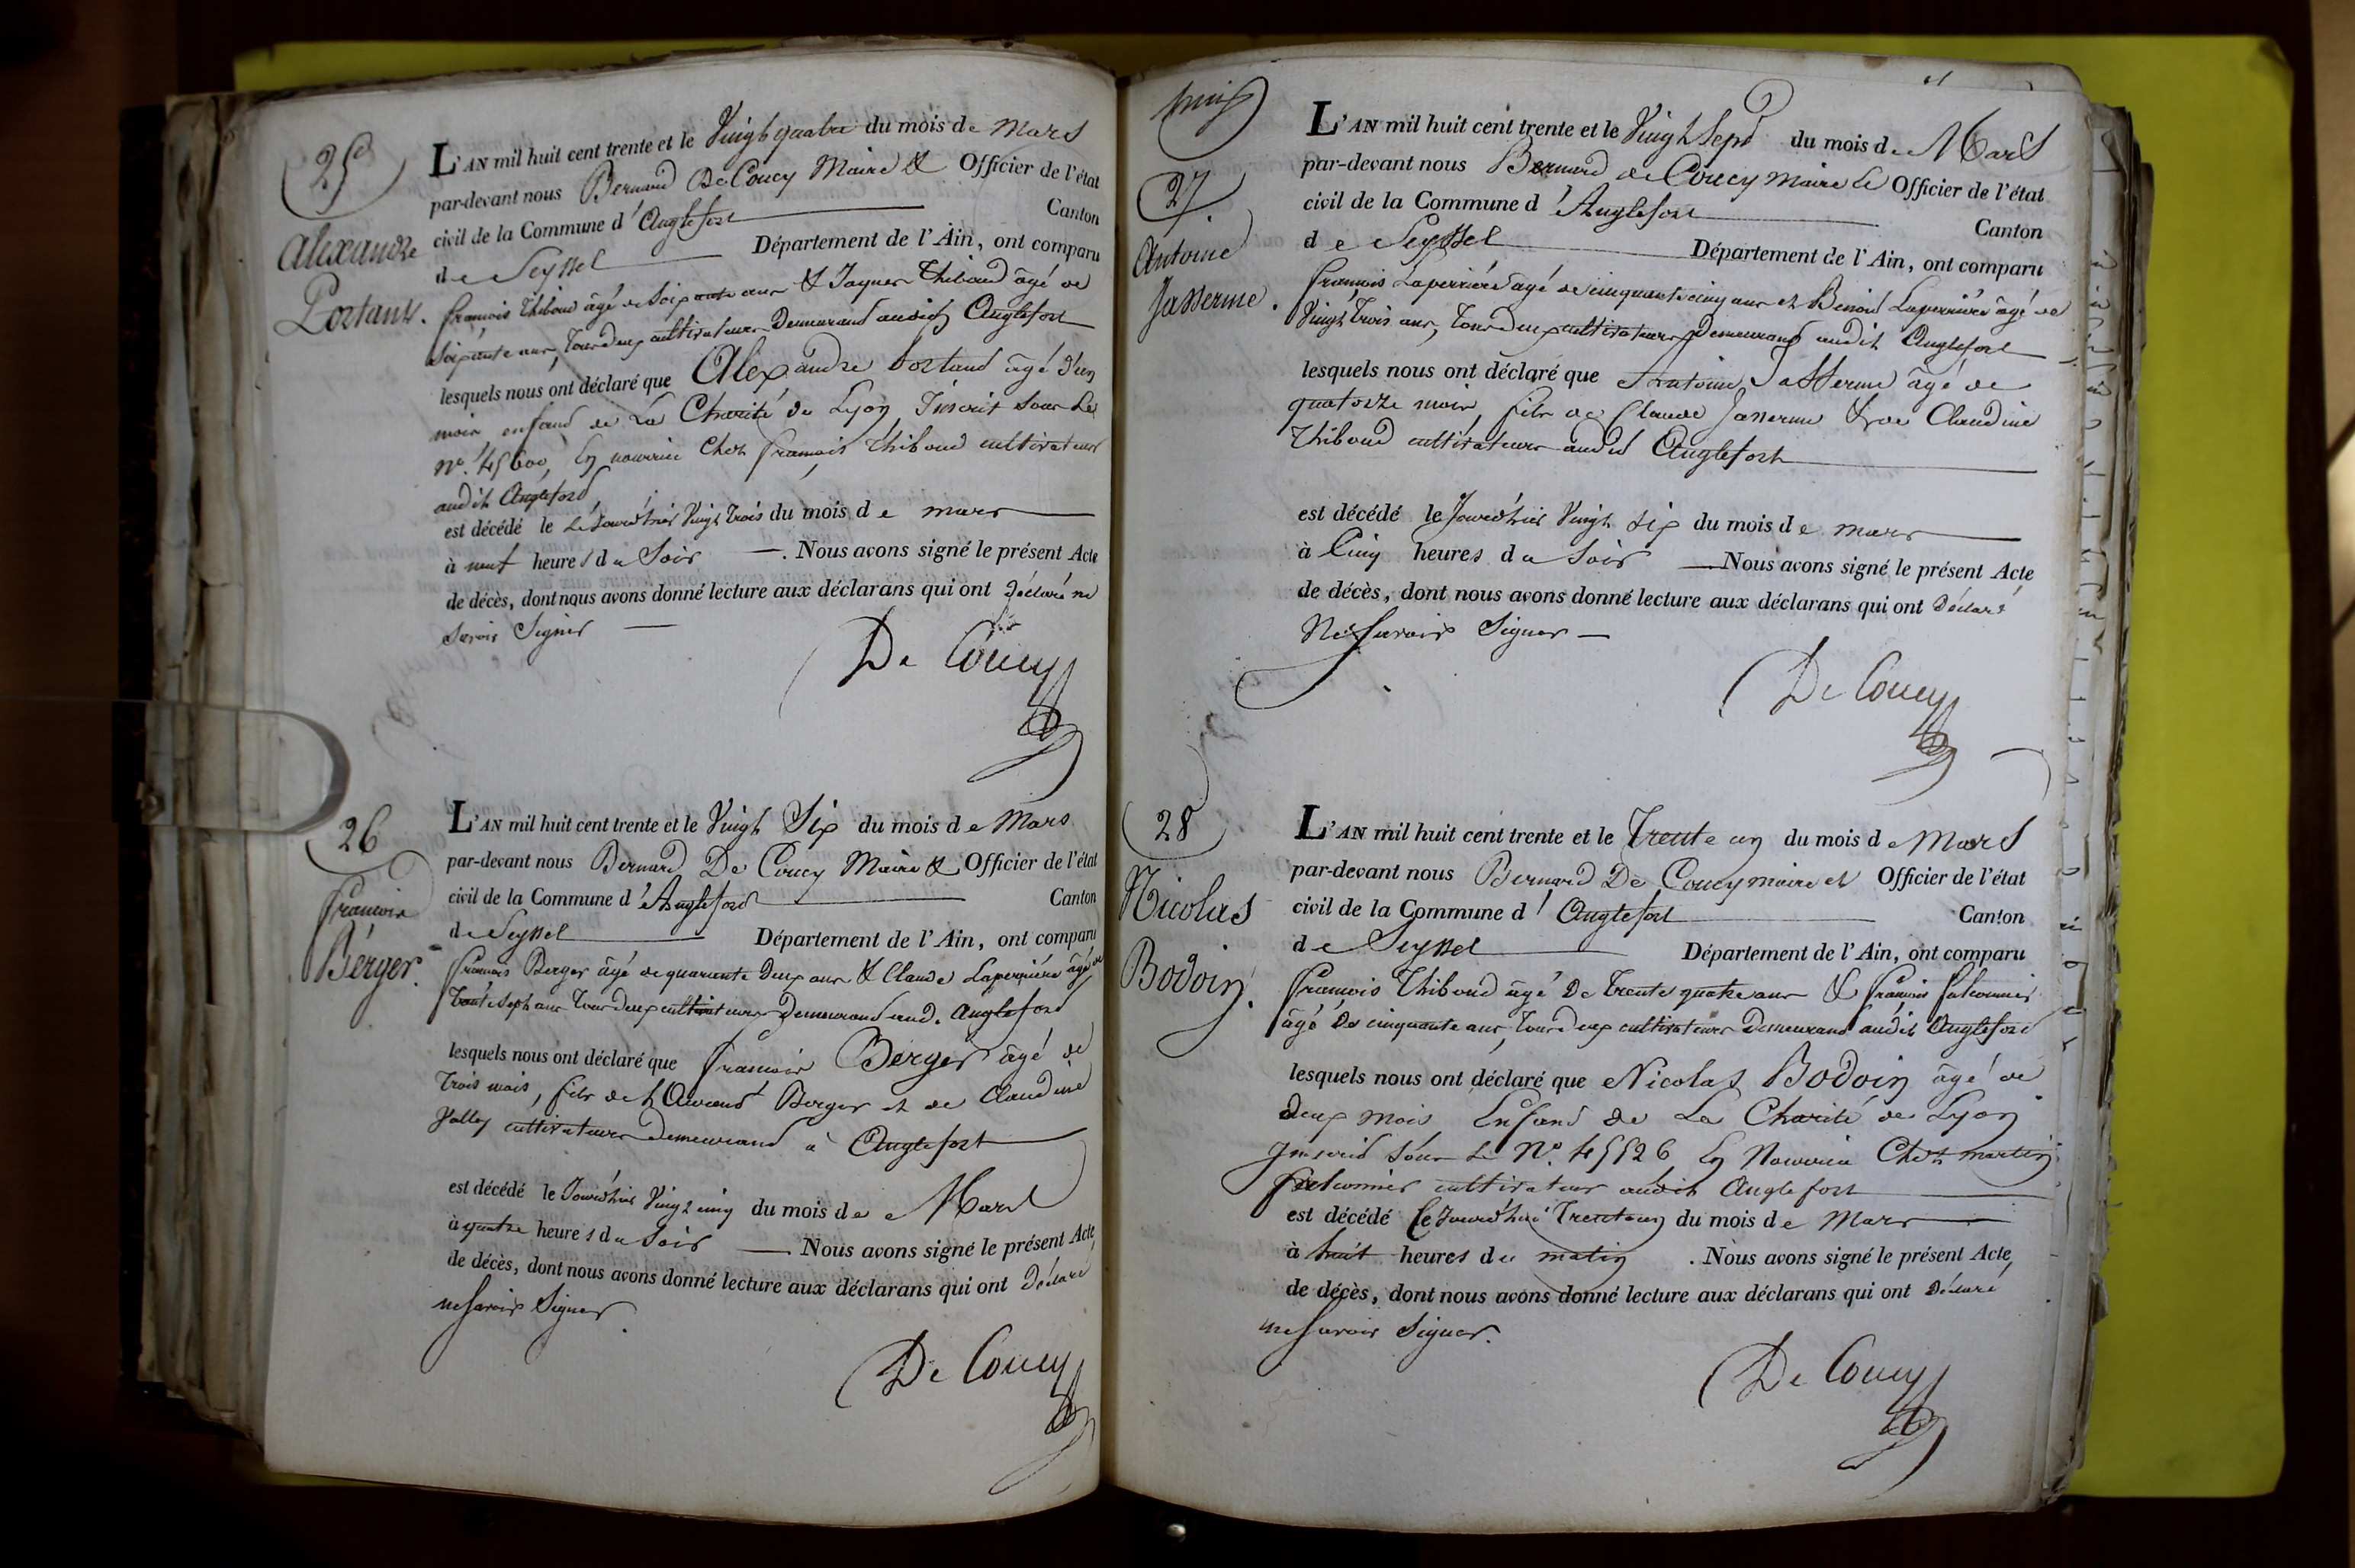 25
Alexandre
Portant.
L'AN mil huit cent trente et le Vingt quatre du mois de Mars
par-devant nous Bernard De Coucy Maire & Officier de l'état
civil de la Commune d'Anglefort Canton
de Seyssel Département de l'Ain, ont comparu
francois Thiboud âgé de Soixante ans & Jaques Thiboud âgé de
Soixante ans, Tous deux cultivateurs Demeurant audit Anglefort
lesquels nous ont déclaré que Alexandre Portant âgé d'un
mois enfant de La Charité de Lyon Inscrit sous Le
N.º 45600, En nourrice Chez francois Thiboud cultivateur
audit Anglefort
est décédé le Le Jourd'hier Vingt Trois du mois de mars
à neuf heures du Soir . Nous avons signé le présent Acte
de décès, dont nous avons donné lecture aux déclarans qui ont Déclaré ne
Savoir Signer
De Coucy
26
francois
Berger.
L'AN mil huit cent trente et le Vingt Six du mois de Mars
par-devant nous Bernard De Coucy Maire & Officier de l'état
civil de la Commune d'Anglefort Canton
de Seyssel Département de l'Ain, ont comparu
francois Berger âgé de quarante Deux ans & Claude Laperrière âgé de
Trente Sept ans Tous deux cultivateurs Demeurant aud. Anglefort
lesquels nous ont déclaré que francois Berger âgé de
Trois mois, fils de Laurent Berger et de Claudine
Jolley cultivateurs Demeurant à Anglefort
est décédé le Jourd'hier Vingt cinq du mois de Mars
à quatre heures du Soir Nous avons signé le présent Acte
de décès, dont nous avons donné lecture aux déclarans qui ont Déclaré
ne Savoir Signer.
De Coucy
27.
Antoine
Jasserme.
L'AN mil huit cent trente et le Vingt Sept du mois de Mars
par-devant nous Bernard de Coucy maire Le Officier de l'état
civil de la Commune d'Anglefort Canton
de Seyssel Département de l'Ain, ont comparu
francois Laperrière âgé de cinquante cinq ans et Benoit Laperrière âgé de
Vingt Trois ans, Tous deux cultivateurs Demeurant audit Anglefort
lesquels nous ont déclaré que Antoine Jasserme âgé de
quatorze mois, fils de Claude Jasserme & de Claudine
Thiboud cultivateurs audit Anglefort
est décédé le Jourd'hier Vingt Six du mois de mars
à Cinq heures du Soir Nous avons signé le présent Acte
de décès, dont nous avons donné lecture aux déclarans qui ont Déclaré
Ne Savoir Signer
De Coucy
28
Nicolas
Bodoin.
L'AN mil huit cent trente et le Trente un du mois de Mars
par-devant nous Bernard De Coucy maire et Officier de l'état
civil de la Commune d'Anglefort Canton
de Seyssel Département de l'Ain, ont comparu
francois Thiboud âgé De Trente quatre ans & francois falconnier
âgé De cinquante ans, Tous deux cultivateurs Demeurant audit Anglefort
lesquels nous ont déclaré que Nicolas Bodoin âgé de
deux mois Enfant de La Charité de Lyon
Inscrit sous Le N.º 45526 En Nourrice Chez martin
falconnier cultivateur audit Anglefort
est décédé Ce Jourd'hui Trente un du mois de Mars
à huit heures du matin . Nous avons signé le présent Acte
de décès, dont nous avons donné lecture aux déclarans qui ont Déclaré
ne Savoir Signer.
De Coucy